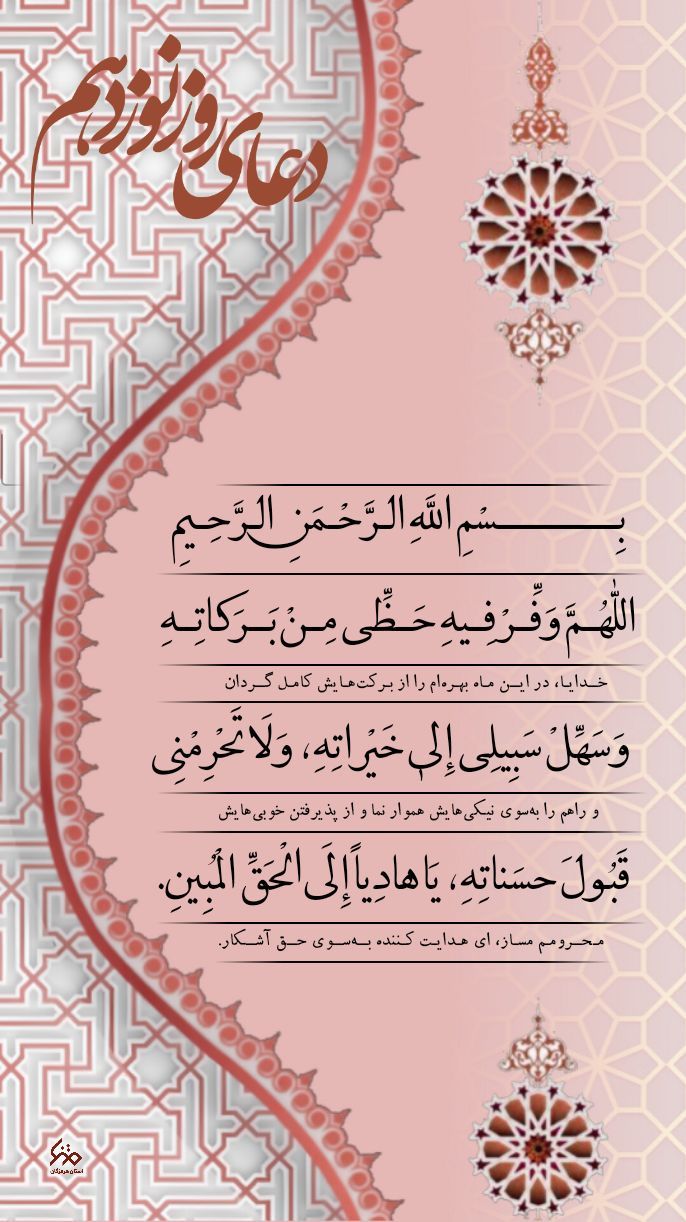 دعای روز نوزدهم
بِـــسْمِ اللَّهِ الرَّحْمَنِ الرَّحِيمِ
اللّٰهُمَّ وَفِّرْ فِيهِ حَظِّى مِنْ بَرَكاتِهِ
خدایا، در این ماه بهره‌ام را از برکت‌هایش کامل گردان
وَسَهِّلْ سَبِيلِى إِلىٰ خَيْراتِهِ، وَلَا تَحْرِمْنِى
و راهم را به‌سوی نیکی‌هایش هموار نما و از پذیرفتن خوبی‌هایش
قَبُولَ حسَناتِهِ، يَا هادِياً إِلَى الْحَقِّ الْمُبِينِ.
محرومم مساز، ای هدایت کننده به‌سوی حق آشکار.
استان هرمزگان